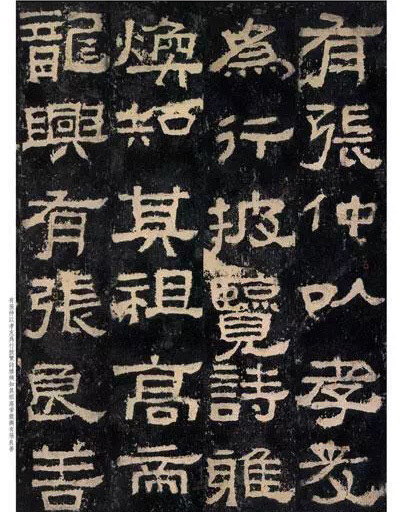 有張仲以孝友
為行披覽詩雅
煥知其祖高帝
龍興有張良善
有張仲以孝友為行披覽詩雅煥知其祖高帝龍興有張良善